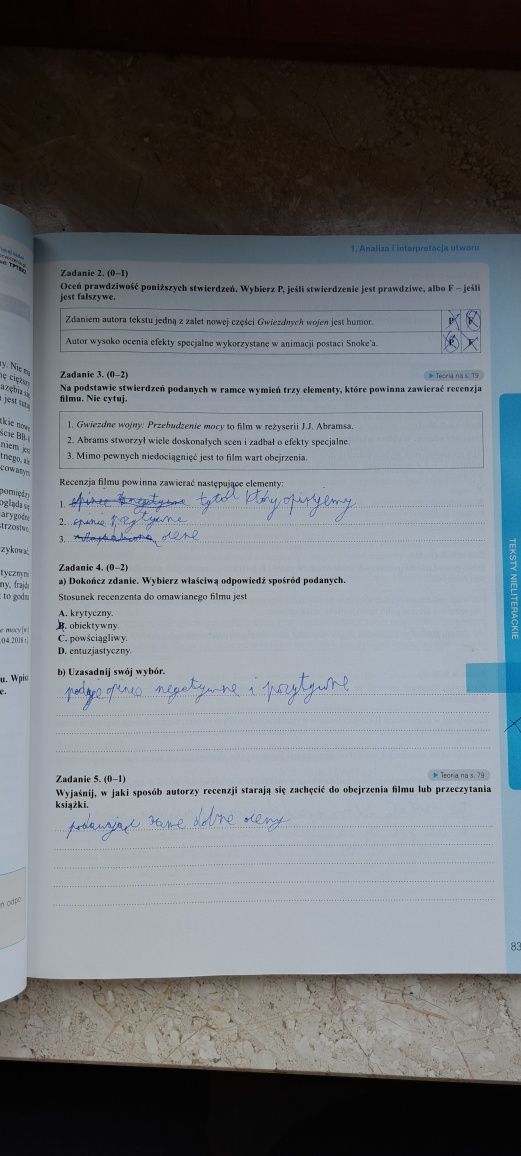 1. Analiza i interpretacja utworu
Zadanie 2. (0–1)
Oceń prawdziwość poniższych stwierdzeń. Wybierz P, jeśli stwierdzenie jest prawdziwe, albo F – jeśli
jest fałszywe.
Zdaniem autora tekstu jedną z zalet nowej części Gwiezdnych wojen jest humor. P F
Autor wysoko ocenia efekty specjalne wykorzystane w animacji postaci Snoke'a. P F
Zadanie 3. (0–2) Teoria na s. 79
Na podstawie stwierdzeń podanych w ramce wymień trzy elementy, które powinna zawierać recenzja
filmu. Nie cytuj.
1. Gwiezdne wojny: Przebudzenie mocy to film w reżyserii J.J. Abramsa.
2. Abrams stworzył wiele doskonałych scen i zadbał o efekty specjalne.
3. Mimo pewnych niedociągnięć jest to film wart obejrzenia.
Recenzja filmu powinna zawierać następujące elementy:
1. tytół który opisujemy
2. opinie pozytywne
3. ocene
Zadanie 4. (0–2)
a) Dokończ zdanie. Wybierz właściwą odpowiedź spośród podanych.
Stosunek recenzenta do omawianego filmu jest
A. krytyczny.
B. obiektywny.
C. powściągliwy.
D. entuzjastyczny.
b) Uzasadnij swój wybór.
podaje opinie negatywne i pozytywne
Zadanie 5. (0–1) Teoria na s. 79
Wyjaśnij, w jaki sposób autorzy recenzji starają się zachęcić do obejrzenia filmu lub przeczytania
książki.
podawając same dobre oceny
TEKSTY NIELITERACKIE
83